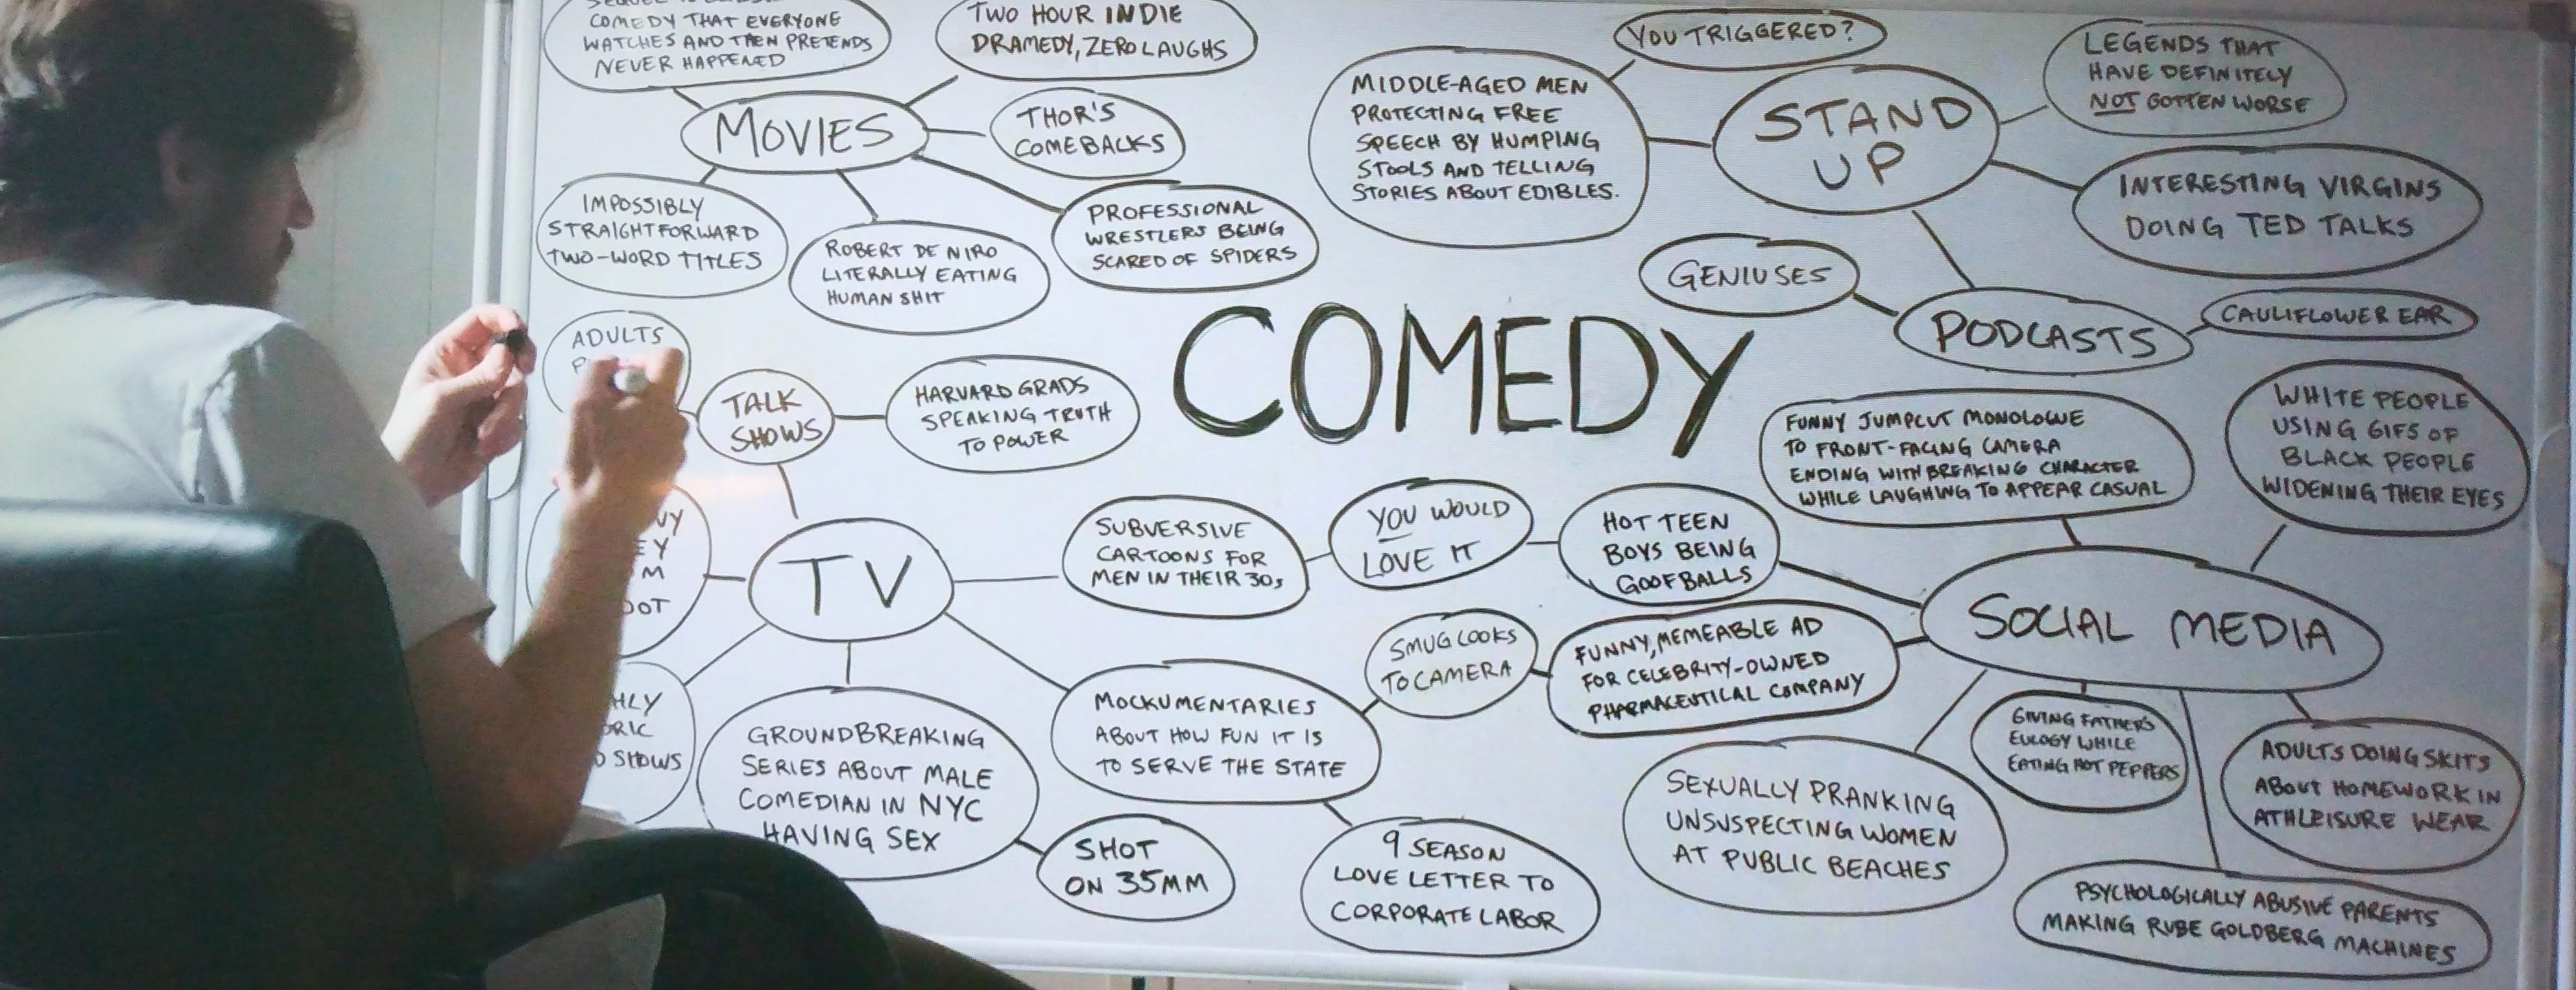 COMEDY THAT EVERYONE
WATCHES AND THEN PRETENDS
NEVER HAPPENED
TWO HOUR INDIE
DRAMEDY, ZERO LAUGHS
MOVIES
THOR'S
COMEBACKS
IMPOSSIBLY
STRAIGHTFORWARD
TWO-WORD TITLES
ROBERT DE NIRO
LITERALLY EATING
HUMAN SHIT
PROFESSIONAL
WRESTLERS BEING
SCARED OF SPIDERS
YOU TRIGGERED?
MIDDLE-AGED MEN
PROTECTING FREE
SPEECH BY HUMPING
STOOLS AND TELLING
STORIES ABOUT EDIBLES.
STAND
UP
LEGENDS THAT
HAVE DEFINITELY
NOT GOTTEN WORSE
INTERESTING VIRGINS
DOING TED TALKS
GENIUSES
PODCASTS
CAULIFLOWER EAR
COMEDY
ADULTS
TALK
SHOWS
HARVARD GRADS
SPEAKING TRUTH
TO POWER
TV
SUBVERSIVE
CARTOONS FOR
MEN IN THEIR 30s
YOU WOULD
LOVE IT
HOT TEEN
BOYS BEING
GOOFBALLS
FUNNY JUMPCUT MONOLOGUE
TO FRONT-FACING CAMERA
ENDING WITH BREAKING CHARACTER
WHILE LAUGHING TO APPEAR CASUAL
WHITE PEOPLE
USING GIFS OF
BLACK PEOPLE
WIDENING THEIR EYES
SOCIAL MEDIA
SMUG LOOKS
TO CAMERA
FUNNY, MEMEABLE AD
FOR CELEBRITY-OWNED
PHARMACEUTICAL COMPANY
MOCKUMENTARIES
ABOUT HOW FUN IT IS
TO SERVE THE STATE
SHOWS
GROUNDBREAKING
SERIES ABOUT MALE
COMEDIAN IN NYC
HAVING SEX
SHOT
ON 35MM
9 SEASON
LOVE LETTER TO
CORPORATE LABOR
SEXUALLY PRANKING
UNSUSPECTING WOMEN
AT PUBLIC BEACHES
GIVING FATHER'S
EULOGY WHILE
EATING HOT PEPPERS
ADULTS DOING SKITS
ABOUT HOMEWORK IN
ATHLEISURE WEAR
PSYCHOLOGICALLY ABUSIVE PARENTS
MAKING RUBE GOLDBERG MACHINES